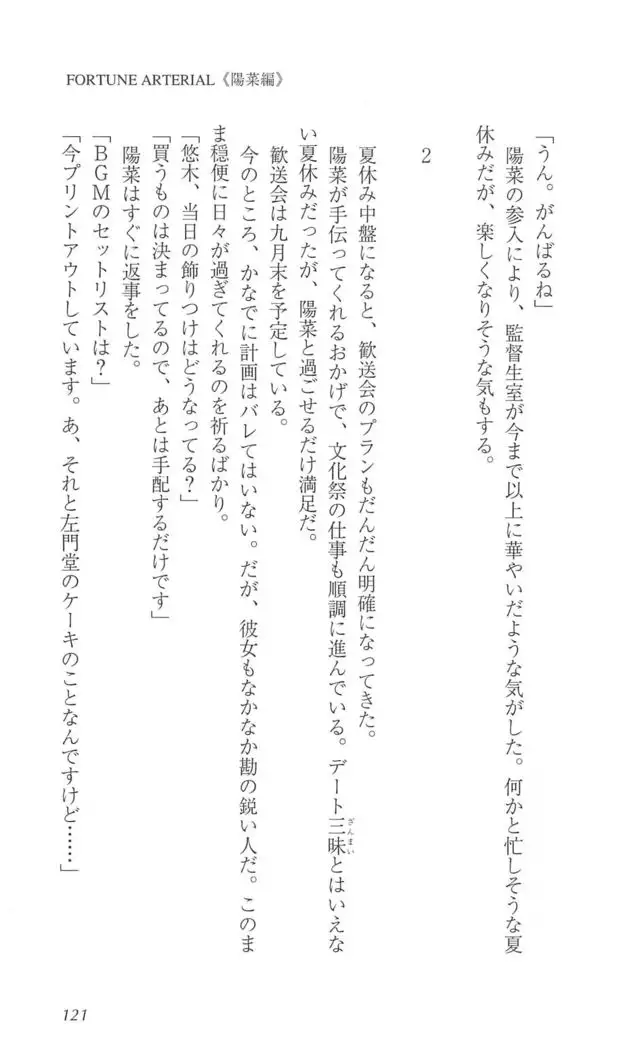 FORTUNE ARTERIAL《陽菜編》
「うん。がんばるね」
　陽菜の参入により、監督生室が今まで以上に華やいだような気がした。何かと忙しそうな夏
休みだが、楽しくなりそうな気もする。
2
　夏休み中盤になると、歓送会のプランもだんだん明確になってきた。
　陽菜が手伝ってくれるおかげで、文化祭の仕事も順調に進んでいる。デート三昧とはいえな
い夏休みだったが、陽菜と過ごせるだけ満足だ。
　歓送会は九月末を予定している。
　今のところ、かなでに計画はバレてはいない。だが、彼女もなかなか勘の鋭い人だ。このま
ま穏便に日々が過ぎてくれるのを祈るばかり。
「悠木、当日の飾りつけはどうなってる？」
「買うものは決まってるので、あとは手配するだけです」
　陽菜はすぐに返事をした。
「ＢＧＭのセットリストは？」
「今プリントアウトしています。あ、それと左門堂のケーキのことなんですけど……」
121